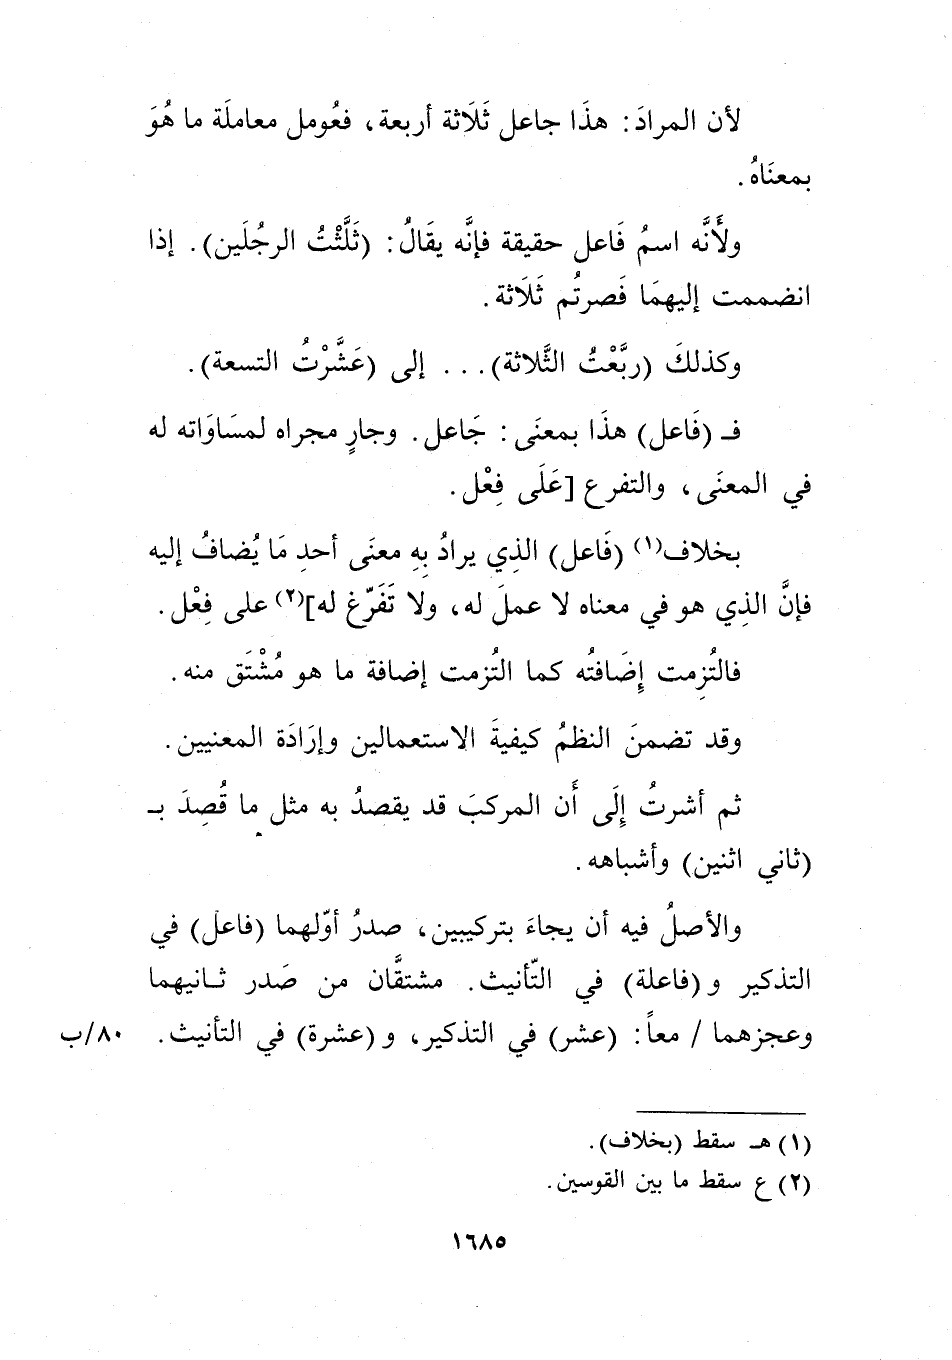 لأن المرادَ: هذَا جاعل ثَلَاثة أربعة، فعُومل معاملَة ما هُوَ
بمعنَاهُ.
ولأَنَّه اسمُ فَاعل حقيقة فإنَّه يقَالُ: (ثَلَّثْتُ الرجُلَين). إذا
انضممت إليهمَا فَصرتُم ثَلَاثة.
وكذلكَ (ربَّعْتُ الثَّلاثة)... إلى (عَشَّرْتُ التسعة).
فـ (فَاعل) هذَا بمعنَى: جَاعل. وجارٍ مجراه لمسَاوَاته له
في المعنَى، والتفرع [عَلَى فِعْل.
بخلاف(١) (فَاعل) الذِي يرادُ بِهِ معنَى أحدِ مَا يُضافُ إليه
فإنَّ الذِي هو في معناه لا عملَ له، ولا تَفَرّغ له](٢) على فِعْل.
فالتُزِمت إِضَافتُه كما التُزمت إضافة ما هو مُشْتَق منه.
وقد تضمنَ النظمُ كيفيةَ الاستعمالين وإرَادَة المعنيين.
ثم أشرتُ إِلَى أَن المركبَ قد يقصدُ به مثل ما قُصِدَ بـ
(ثاني اثنين) وأشباهه.
والأصلُ فيه أن يجاءَ بتركيبين، صدرُ أوّلهما (فاعل) في
التذكير و (فاعلة) في التّأنيث. مشتقَّان من صَدر ثـانيهما
وعجزهما / معاً: (عشر) في التذكير، و (عشرة) في التأنيث. ٨٠/ب
(١) هـ سقط (بخلاف).
(٢) ع سقط ما بين القوسين.
١٦٨٥